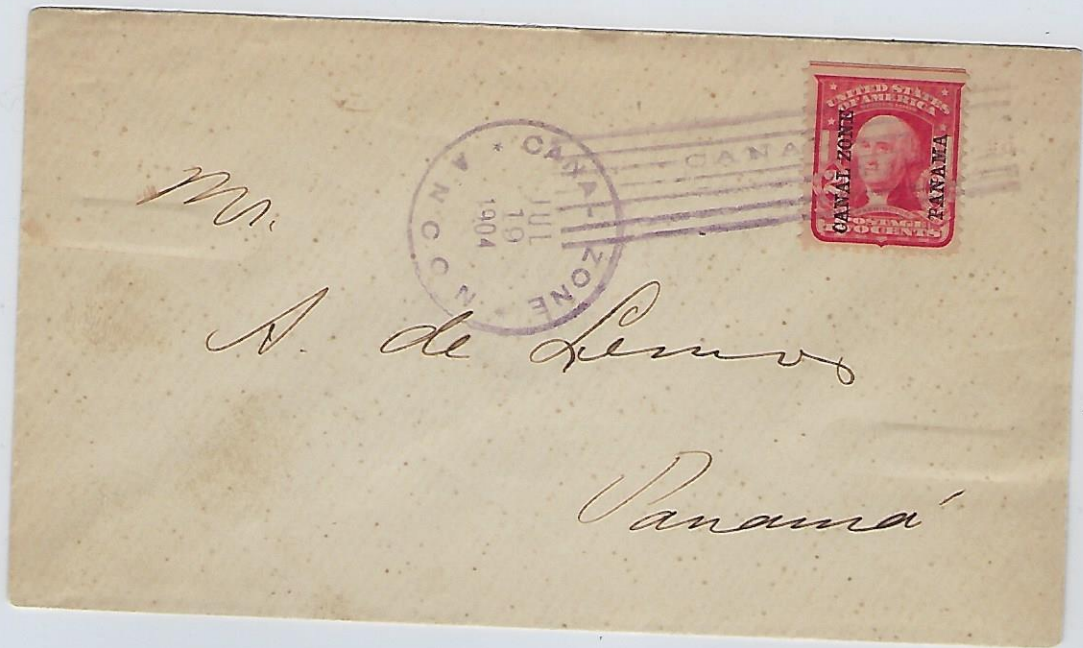 UNITED STATES
OF AMERICA
CANAL ZONE
PANAMA
POSTAGE
TWO CENTS
CANAL ZONE
ANCON
JUL
19
1904
CANA
Mr.
A. de Lemos
Panamá